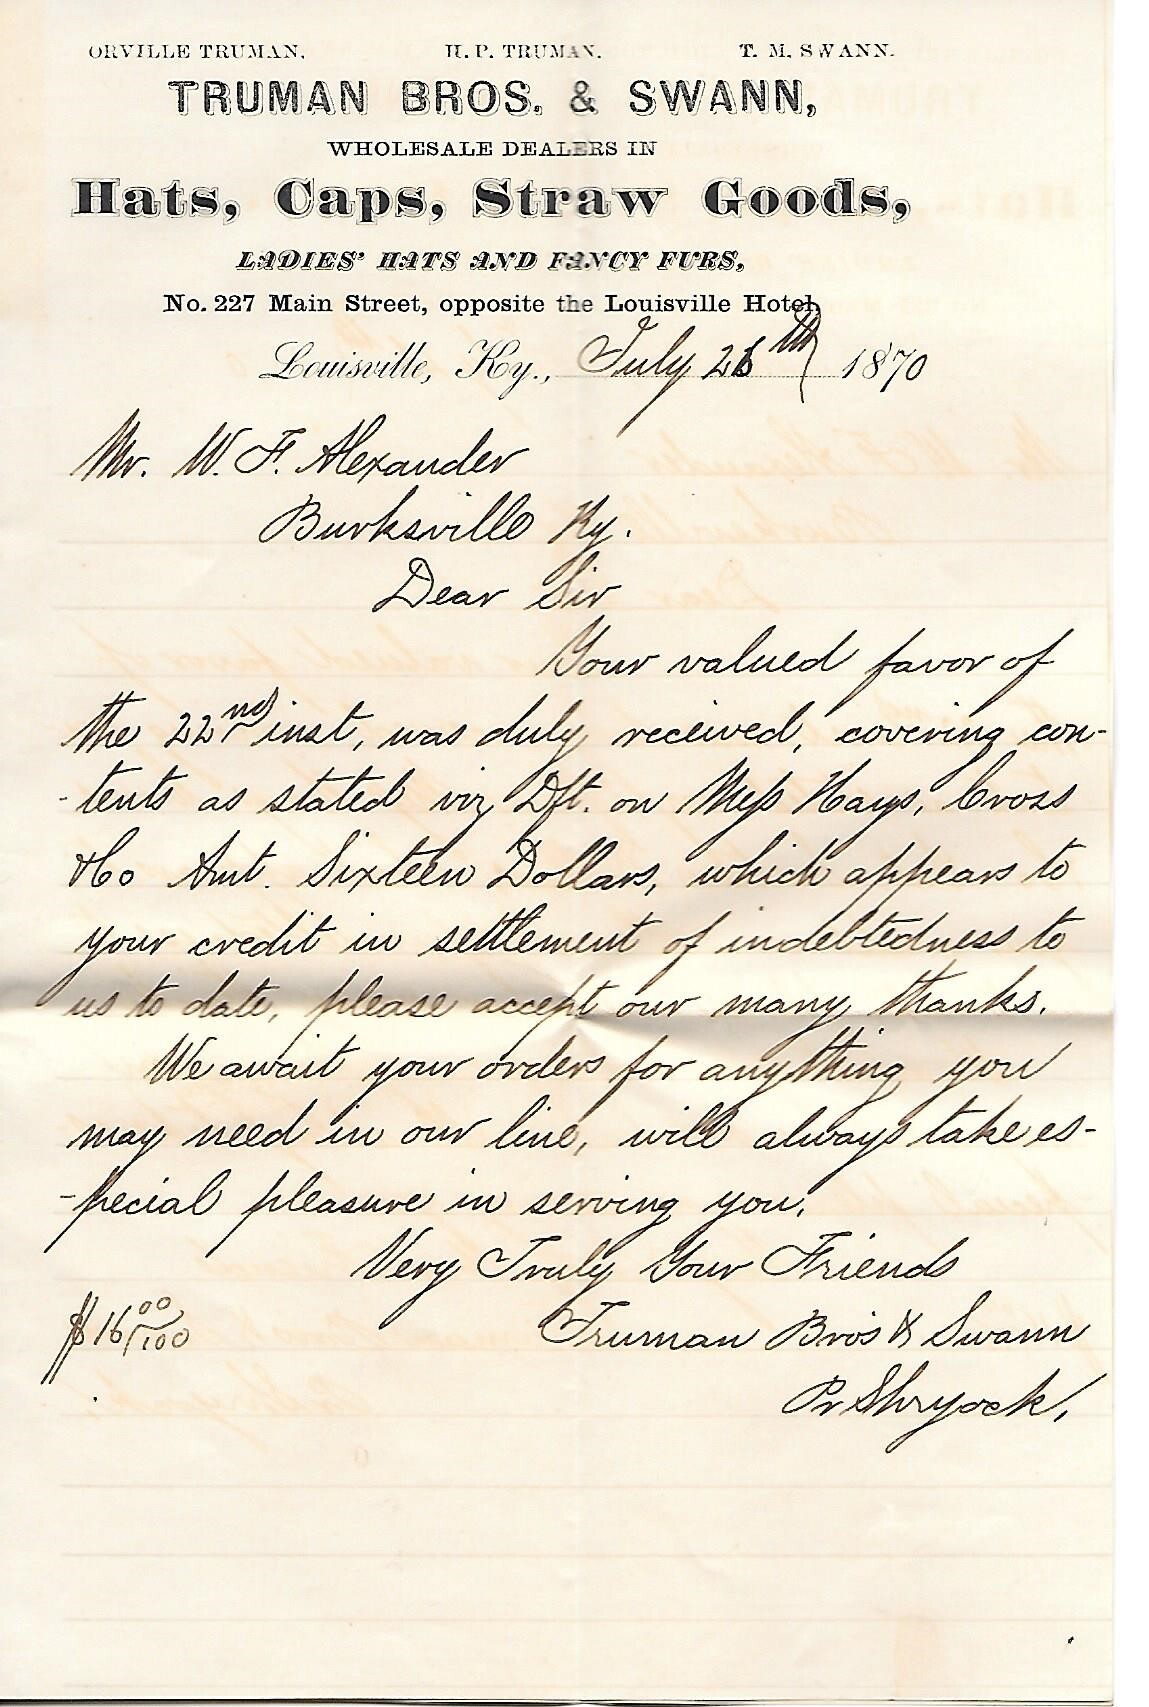 ORVILLE TRUMAN. H. P. TRUMAN. T. M. SWANN.
TRUMAN BROS. & SWANN,
WHOLESALE DEALERS IN
Hats, Caps, Straw Goods,
LADIES' HATS AND FANCY FURS,
No. 227 Main Street, opposite the Louisville Hotel,
Louisville, Ky., July 26th 1870
Mr. W. F. Alexander
Burksville Ky.
Dear Sir
Your valued favor of
the 22nd inst, was duly received, covering con-
-tents as stated viz Dft. on Mess Hays, Cross
& Co Amt. Sixteen Dollars, which appears to
your credit in settlement of indebtedness to
us to date, please accept our many thanks.
We await your orders for anything you
may need in our line, will always take es-
-pecial pleasure in serving you.
Very Truly Your Friends
$16 00/100 Truman Bro's & Swann
Pr Shryock.